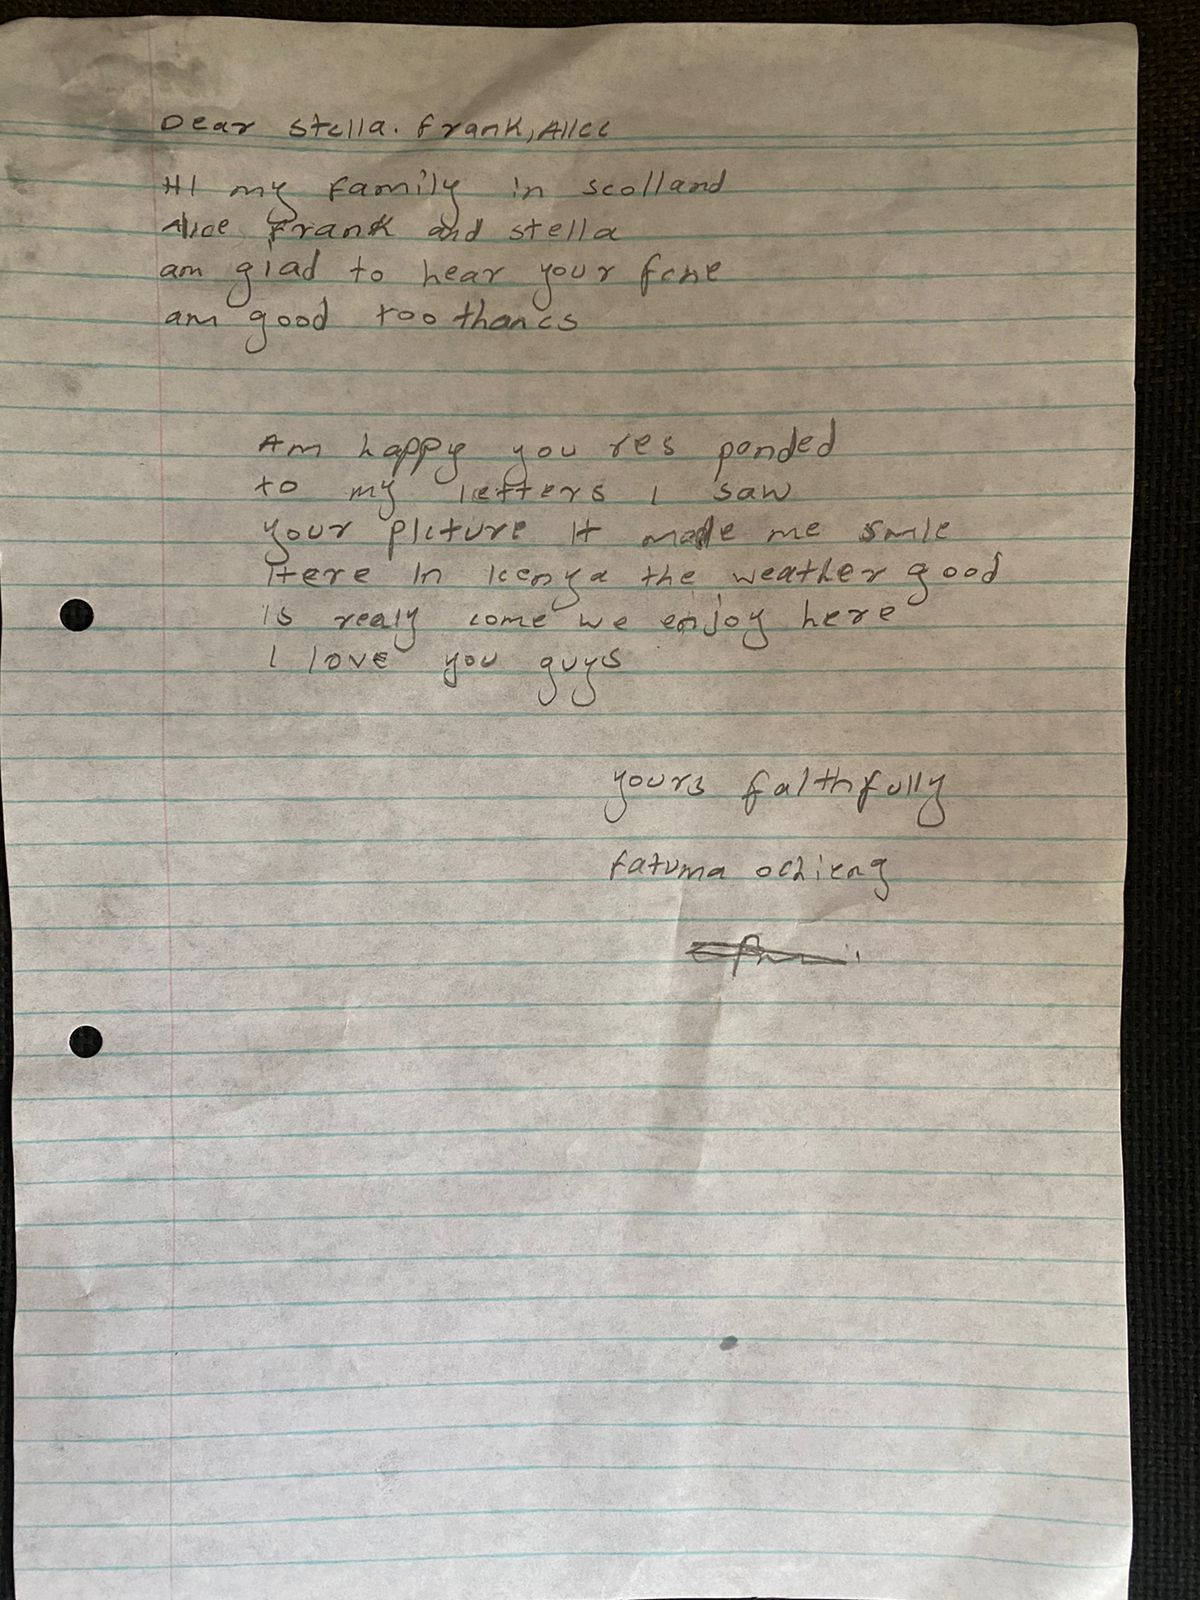 Dear Stella. Frank, Alice
HI my family in scolland
Alice Frank and stella
am glad to hear your fene
am good too thancs
Am happy you res ponded
to my letters I saw
your picture It made me smile
Here In kenya the weather good
is realy come we enjoy here
I love you guys
yours faithfully
fatuma ochieng